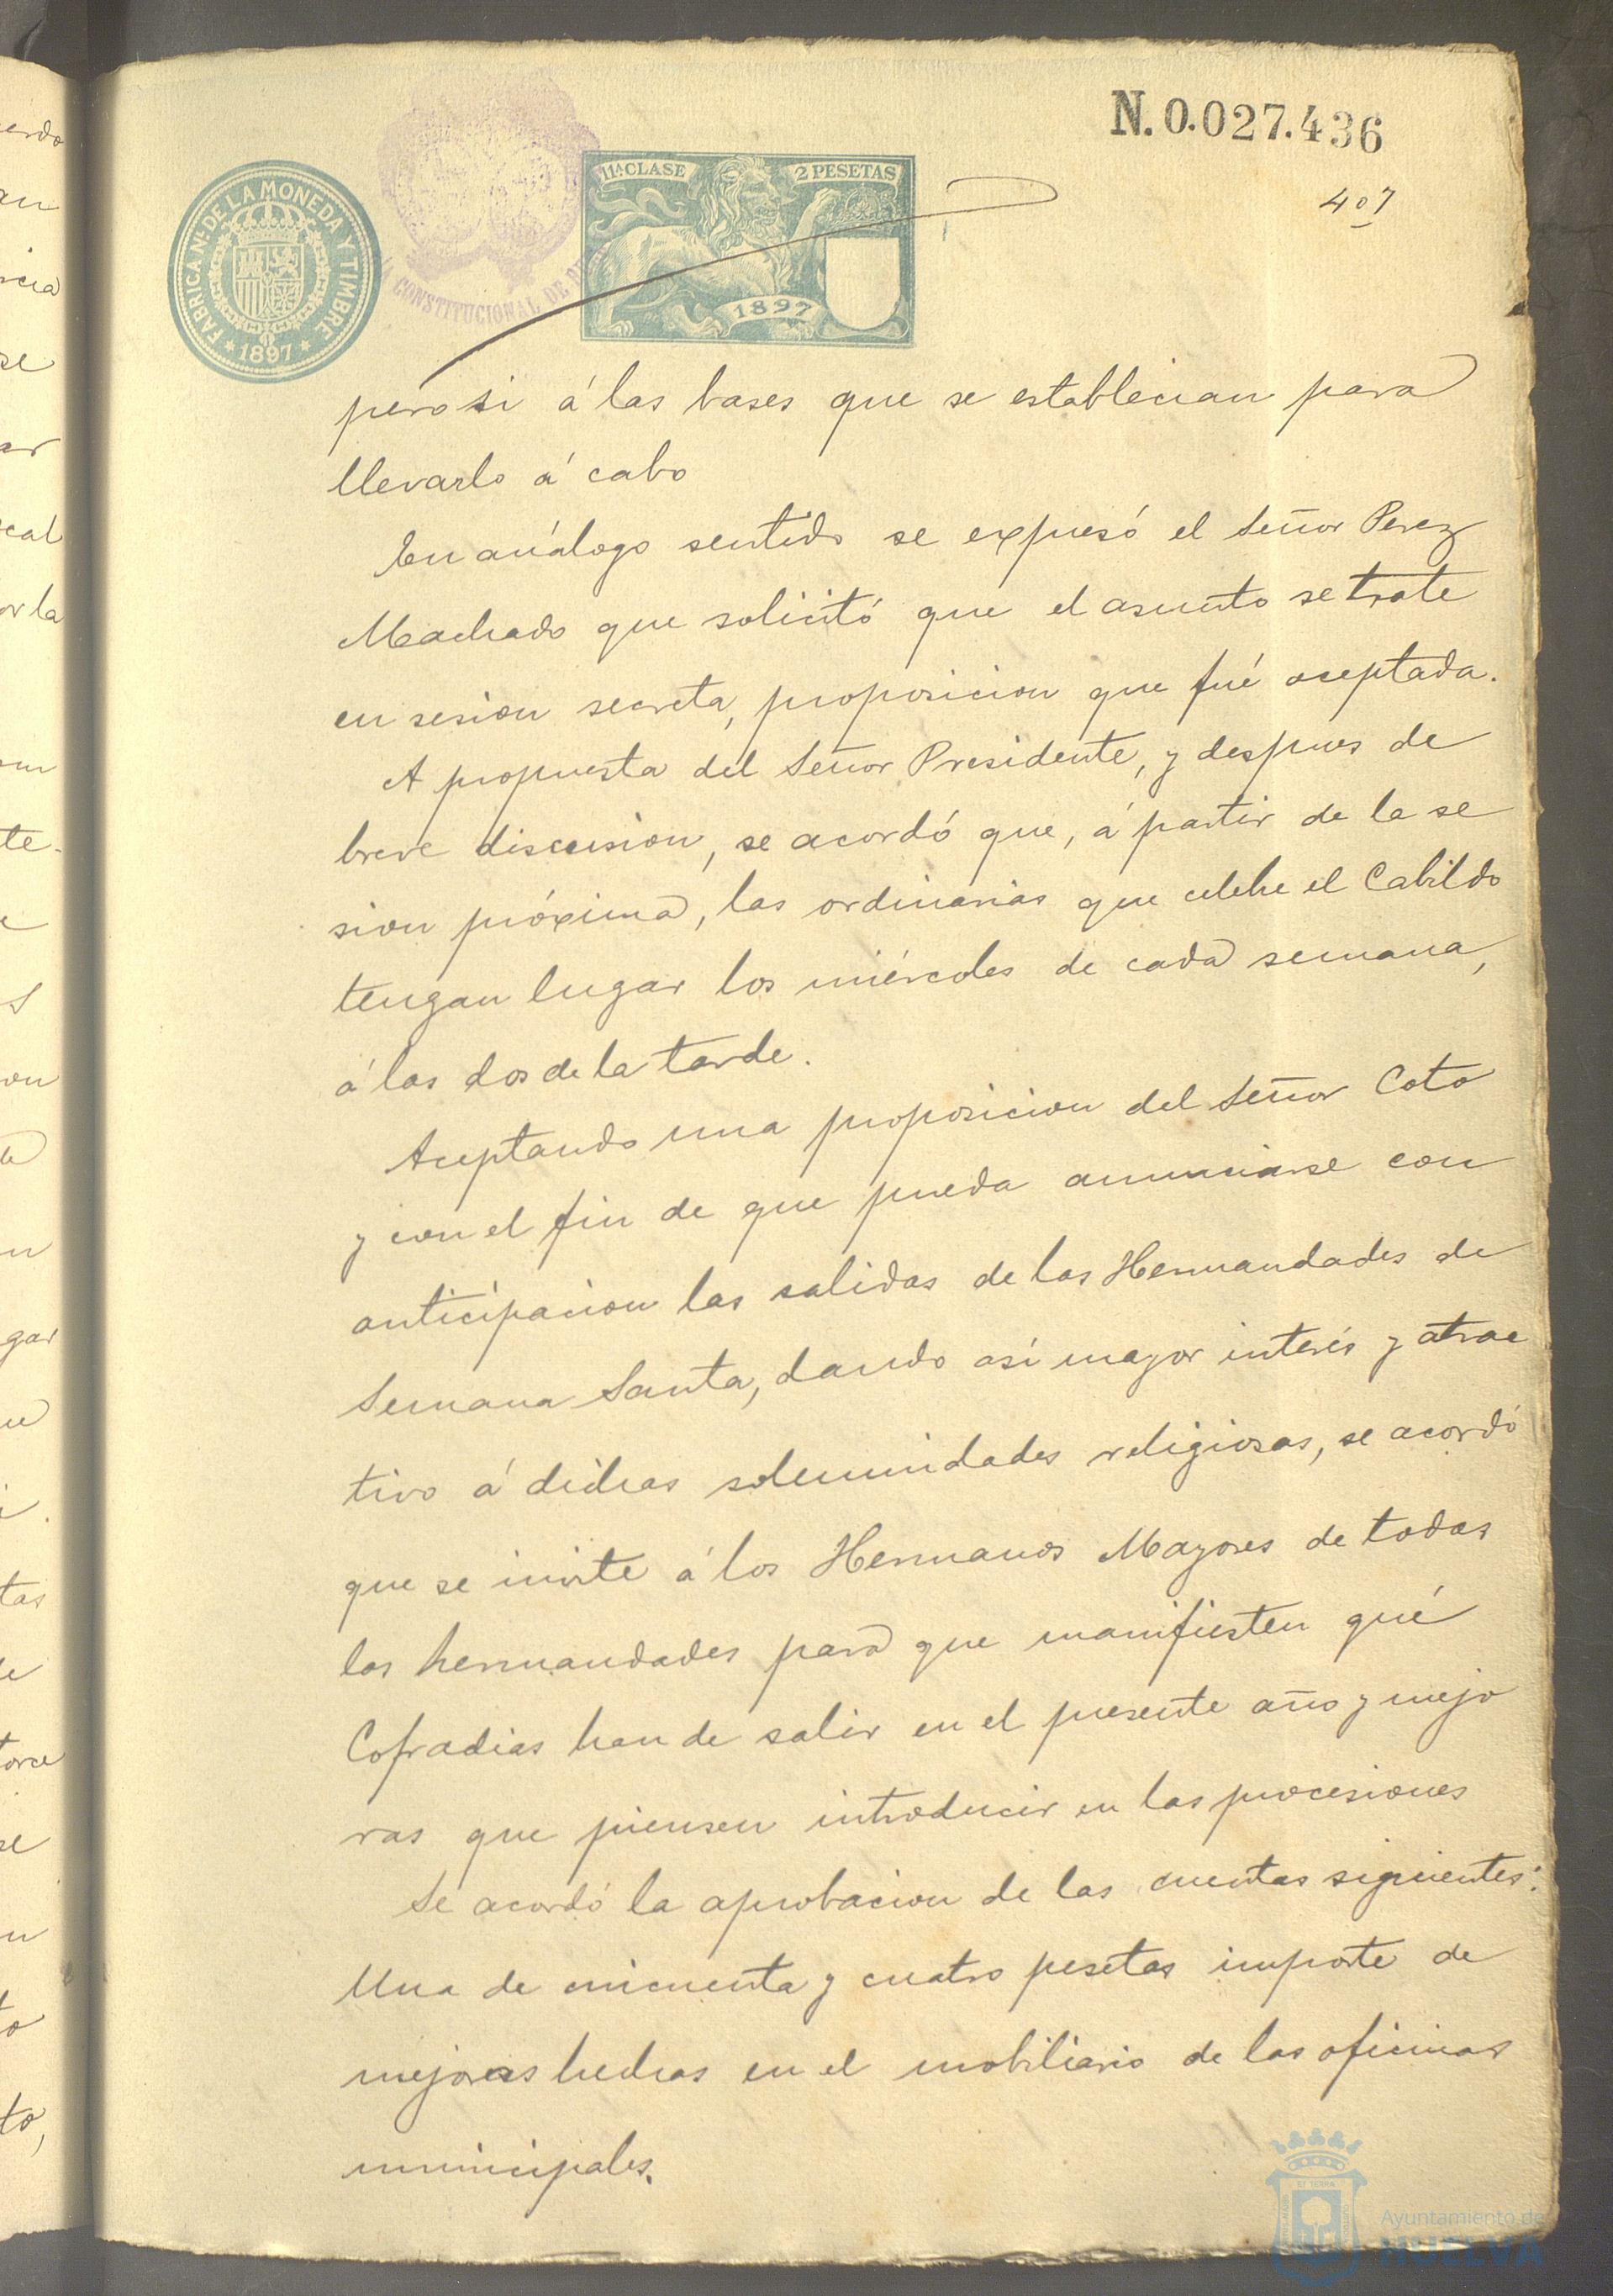 N.0.027.436
407
11ª CLASE
2 PESETAS
1897
FABRICA Nal DE LA MONEDA Y TIMBRE
* 1897 *
CONSTITUCIONAL DE
pero si á las bases que se establecian para
llevarlo á cabo
En análogo sentido se expresó el Señor Perez
Machado que solicitó que el asunto se trate
en sesion secreta, proposicion que fué aceptada.
A propuesta del Señor Presidente, y despues de
breve discusion, se acordó que, á partir de la se
sion próxima, las ordinarias que celebre el Cabildo
tengan lugar los miércoles de cada semana,
á las dos de la tarde.
Aceptando una proposicion del Señor Coto
y con el fin de que pueda anunciarse con
anticipacion las salidas de las Hermandades de
Semana Santa, dando así mayor interés y atrac
tivo á dichas solemnidades religiosas, se acordó
que se invite á los Hermanos Mayores de todas
las hermandades para que manifiesten qué
Cofradias han de salir en el presente año y mejo
ras que piensen introducir en las procesiones
Se acordó la aprobacion de las cuentas siguientes:
Una de cincuenta y cuatro pesetas importe de
mejoras hechas en el mobiliario de las oficinas
municipales.
Ayuntamiento de
HUELVA